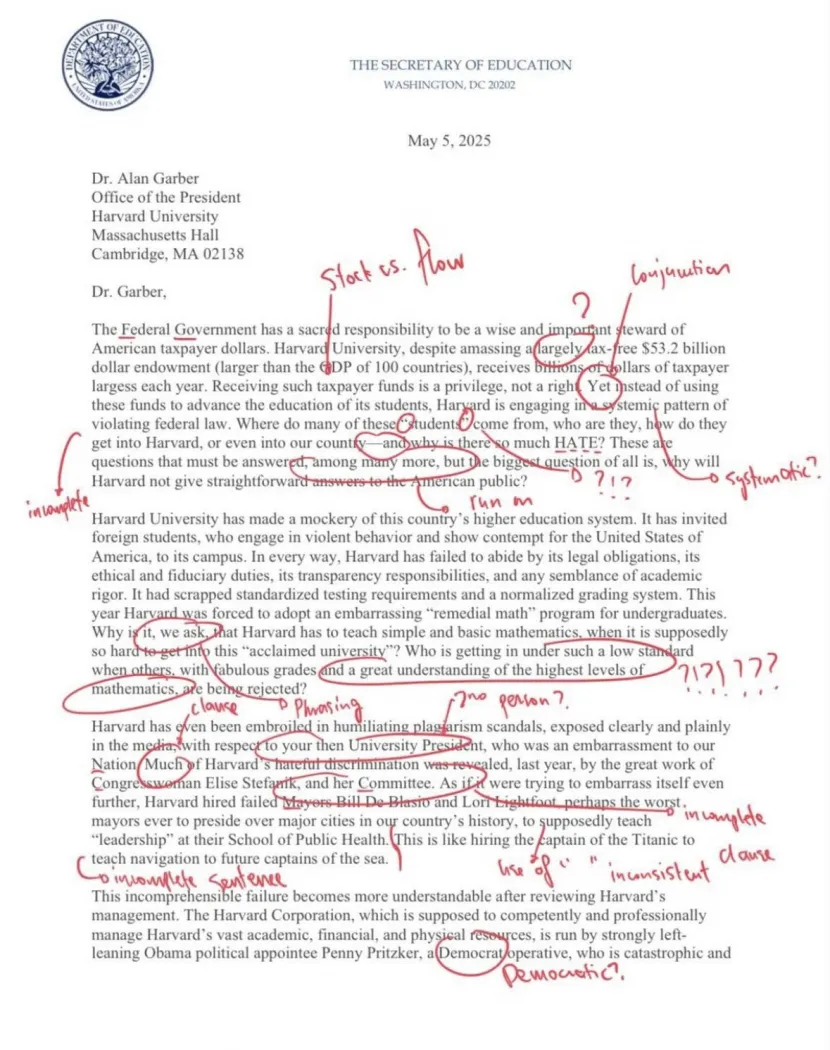 DEPARTMENT OF EDUCATION
UNITED STATES OF AMERICA
THE SECRETARY OF EDUCATION
WASHINGTON, DC 20202
May 5, 2025
Dr. Alan Garber
Office of the President
Harvard University
Massachusetts Hall
Cambridge, MA 02138
Stock vs. flow
Conjunction
Dr. Garber,
?
The Federal Government has a sacred responsibility to be a wise and important steward of
American taxpayer dollars. Harvard University, despite amassing a largely tax-free $53.2 billion
dollar endowment (larger than the GDP of 100 countries), receives billions of dollars of taxpayer
largess each year. Receiving such taxpayer funds is a privilege, not a right. Yet instead of using
these funds to advance the education of its students, Harvard is engaging in a systemic pattern of
violating federal law. Where do many of these “students” come from, who are they, how do they
get into Harvard, or even into our country—and why is there so much HATE? These are
questions that must be answered, among many more, but the biggest question of all is, why will
Harvard not give straightforward answers to the American public?
systematic?
?!?
incomplete
run on
Harvard University has made a mockery of this country’s higher education system. It has invited
foreign students, who engage in violent behavior and show contempt for the United States of
America, to its campus. In every way, Harvard has failed to abide by its legal obligations, its
ethical and fiduciary duties, its transparency responsibilities, and any semblance of academic
rigor. It had scrapped standardized testing requirements and a normalized grading system. This
year Harvard was forced to adopt an embarrassing “remedial math” program for undergraduates.
Why is it, we ask, that Harvard has to teach simple and basic mathematics, when it is supposedly
so hard to get into this “acclaimed university”? Who is getting in under such a low standard
when others, with fabulous grades and a great understanding of the highest levels of
mathematics, are being rejected?
?!?!???
clause
Phrasing
2nd person?
Harvard has even been embroiled in humiliating plagiarism scandals, exposed clearly and plainly
in the media, with respect to your then University President, who was an embarrassment to our
Nation. Much of Harvard’s hateful discrimination was revealed, last year, by the great work of
Congresswoman Elise Stefanik, and her Committee. As if it were trying to embarrass itself even
further, Harvard hired failed Mayors Bill De Blasio and Lori Lightfoot, perhaps the worst
mayors ever to preside over major cities in our country’s history, to supposedly teach
“leadership” at their School of Public Health. This is like hiring the captain of the Titanic to
teach navigation to future captains of the sea.
incomplete
clause
incomplete sentence
Use of “ ” inconsistent
This incomprehensible failure becomes more understandable after reviewing Harvard’s
management. The Harvard Corporation, which is supposed to competently and professionally
manage Harvard’s vast academic, financial, and physical resources, is run by strongly left-
leaning Obama political appointee Penny Pritzker, a Democrat operative, who is catastrophic and
Democratic?